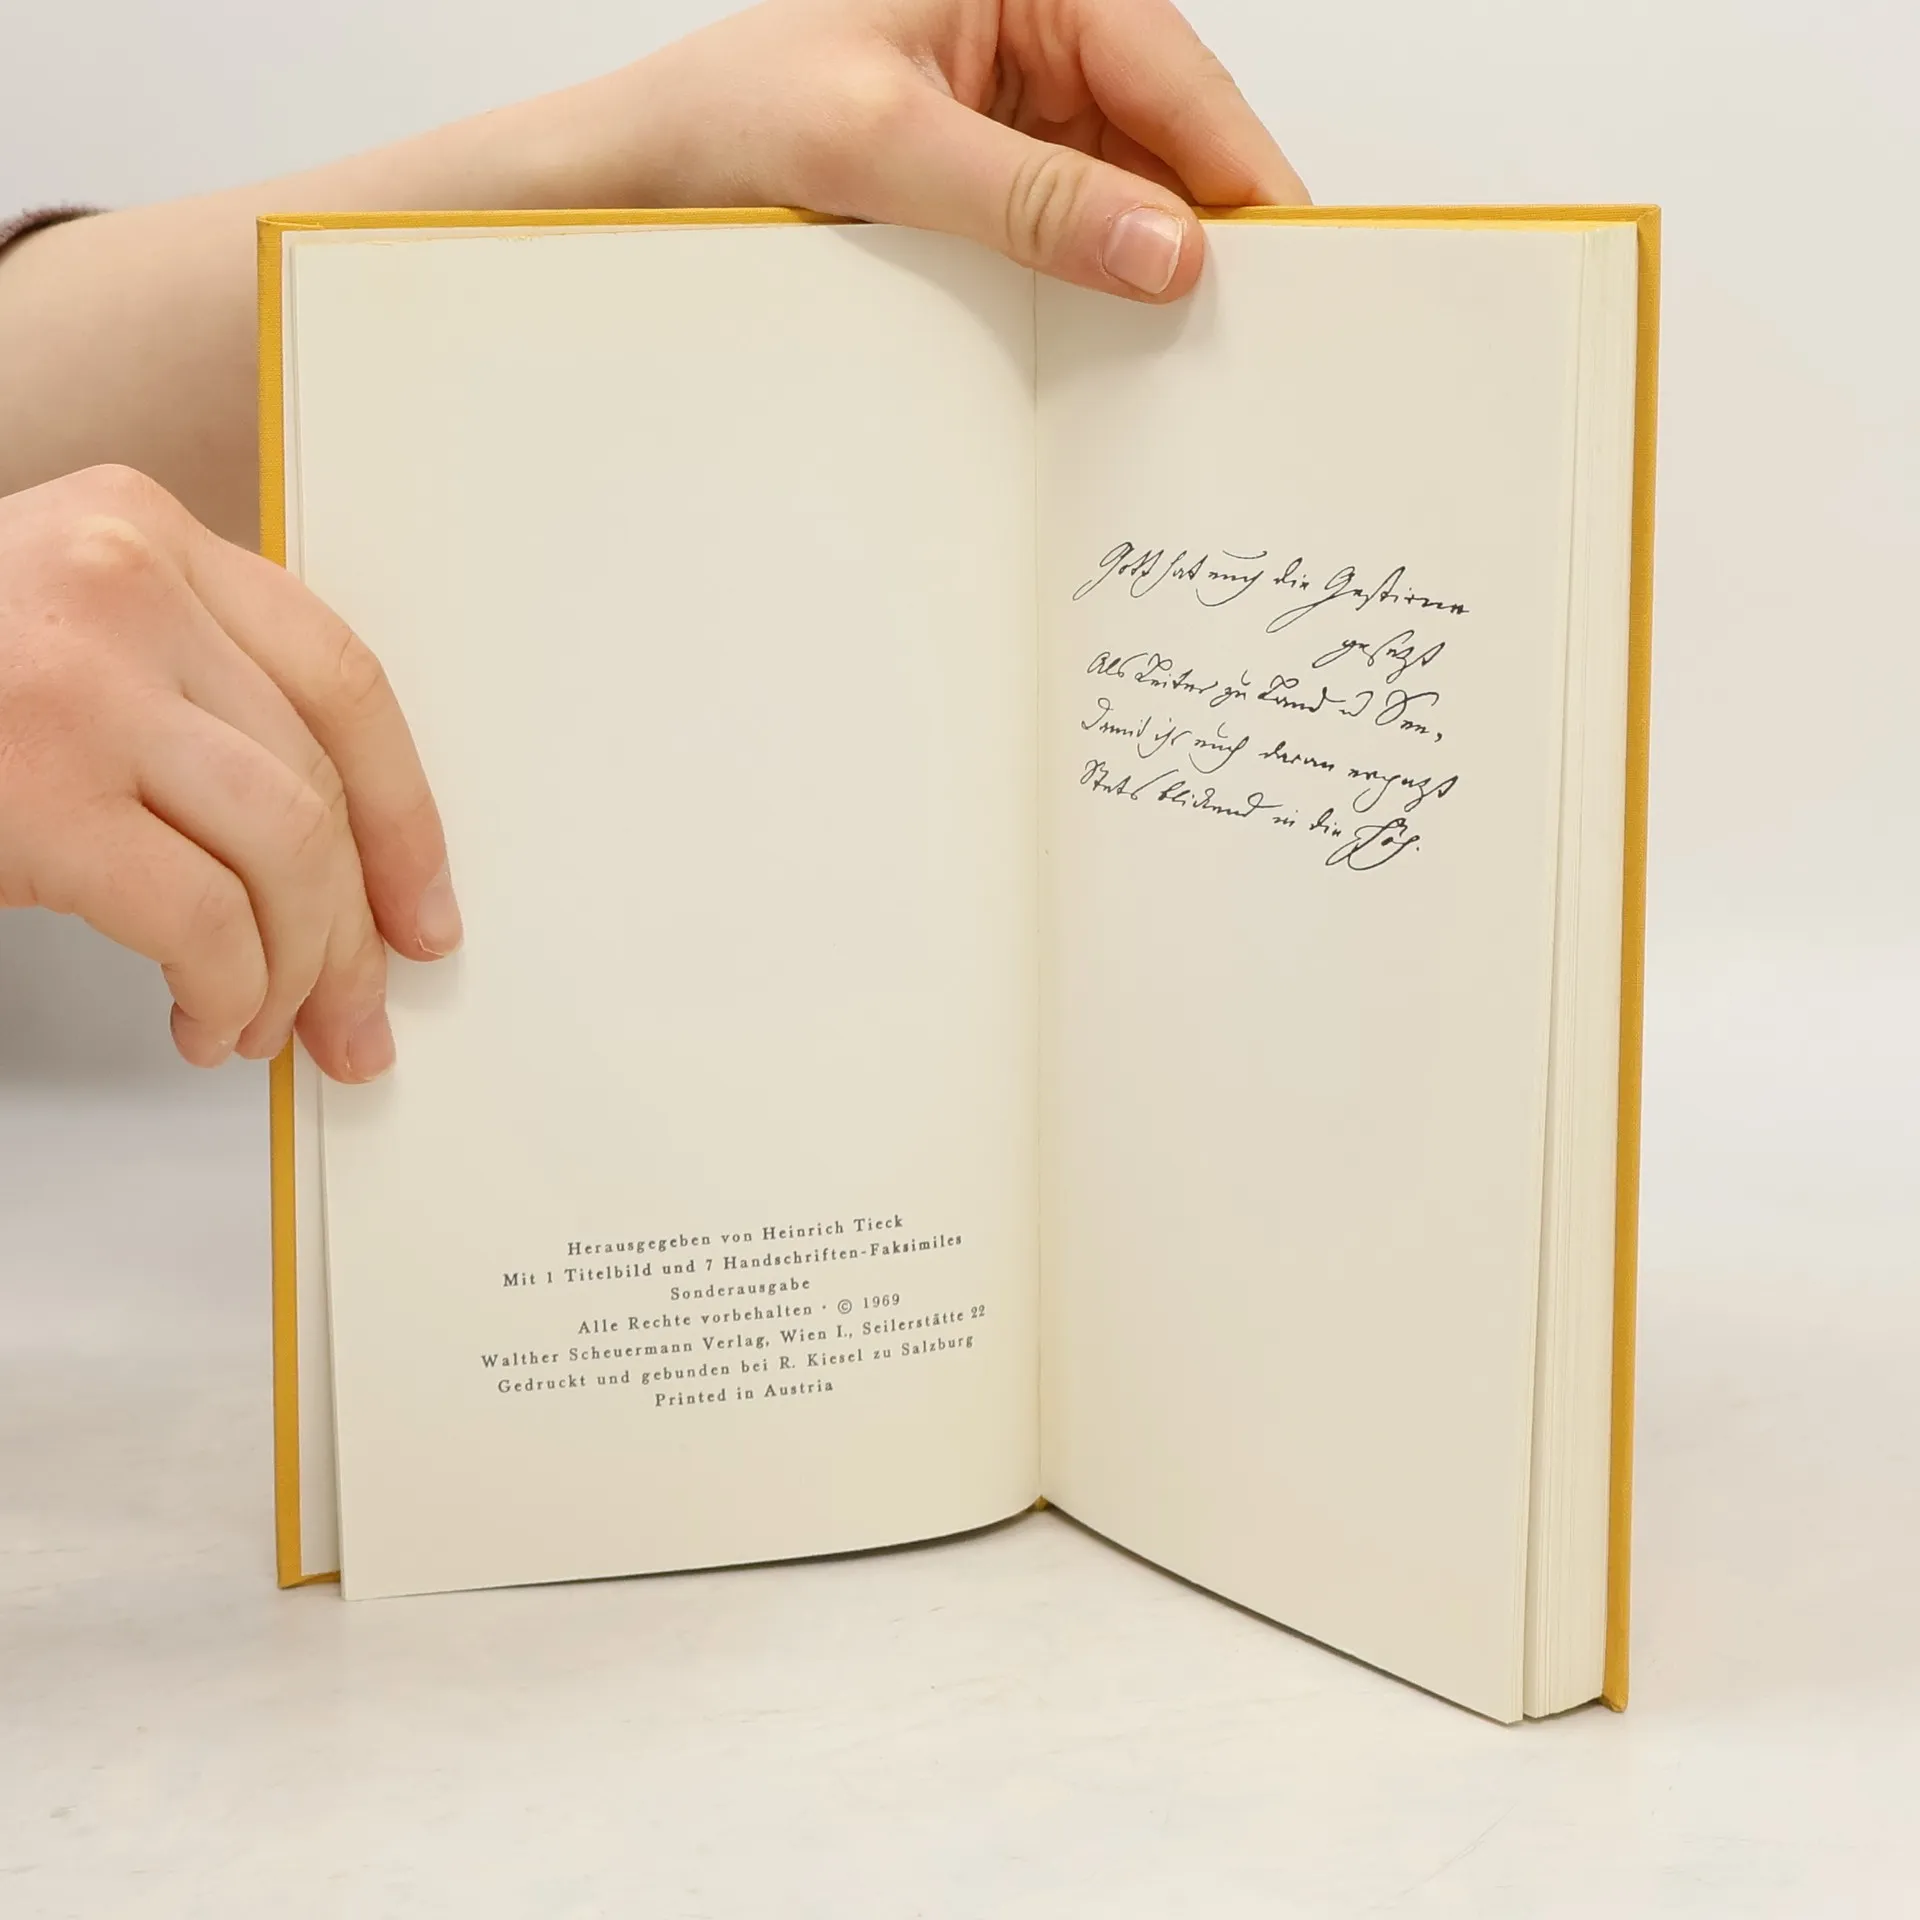 Herausgegeben von Heinrich Tieck
Mit 1 Titelbild und 7 Handschriften-Faksimiles
Sonderausgabe
Alle Rechte vorbehalten · © 1969
Walther Scheuermann Verlag, Wien I., Seilerstätte 22
Gedruckt und gebunden bei R. Kiesel zu Salzburg
Printed in Austria
Gott hat euch die Gestirne
gesetzt
Als Leiter zu Land u See,
Damit ihr euch daran ergetzt
Stets blickend in die Höh.